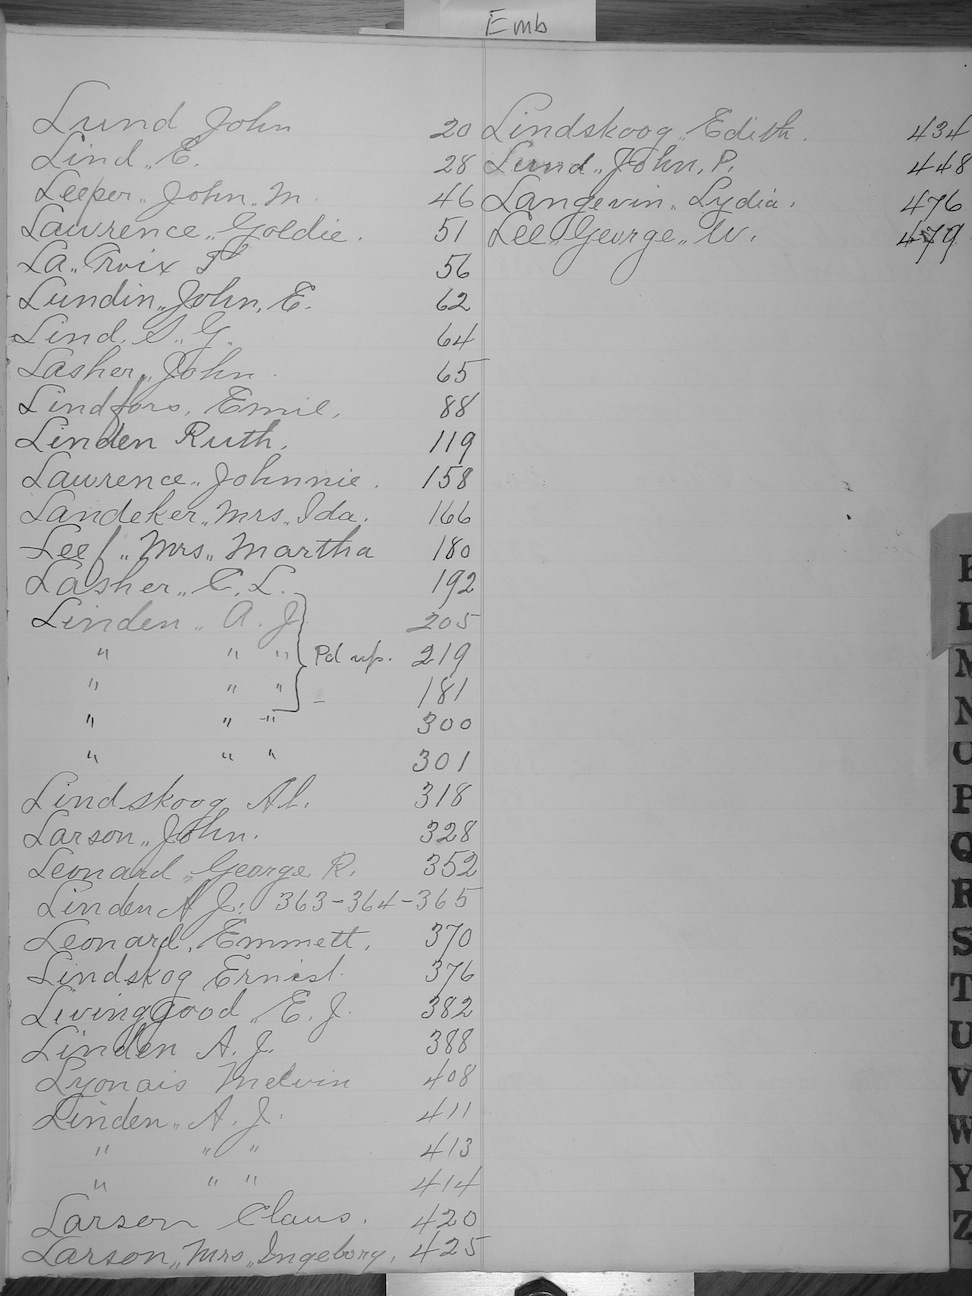 Emb
Lund John 20
Lind,, E. 28
Leeper,, John,, M. 46
Lawrence,, Goldie. 51
La,, Croix 56
Lundin,, John, E. 62
Lind. S. G. 64
Lasher,, John. 65
Lindfors, Emil. 88
Linden Ruth. 119
Lawrence,, Johnnie. 158
Landeker,, Mrs,, Ida. 166
Leef,, Mrs,, Martha 180
Lasher,, C. L. 192
Linden,, A. J 205
" " " Pd up. 219
" " " 181
" " " 300
" " " 301
Lindskoog Al. 318
Larson,, John. 328
Leonard,, George R. 352
Linden A J. 363-364-365
Leonard, Emmett. 370
Lindskog Ernest. 376
Livinggood,, E. J. 382
Linden A. J. 388
Lyonais Melvin 408
Linden,, A. J. 411
" " " 413
" " " 414
Larsen Claus. 420
Larson,, Mrs,, Ingeborg. 425
Lindskoog,, Edith. 434
Lund,, John, P. 448
Langevin,, Lydia. 476
Lee,, George,, W. 479
K
L
M
N
O
P
Q
R
S
T
U
V
W
Y
Z